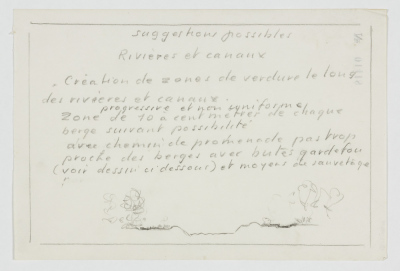 suggestions possibles
Rivières et canaux
Création de zones de verdure le long
des rivières et canaux.
progressive et non uniforme
Zone de 10 a cent mètres de chaque
berge suivant possibilité
avec chemin de promenade pas trop
proche des berges avec butes gardefou
(voir dessin ci dessous) et moyens de sauvetage